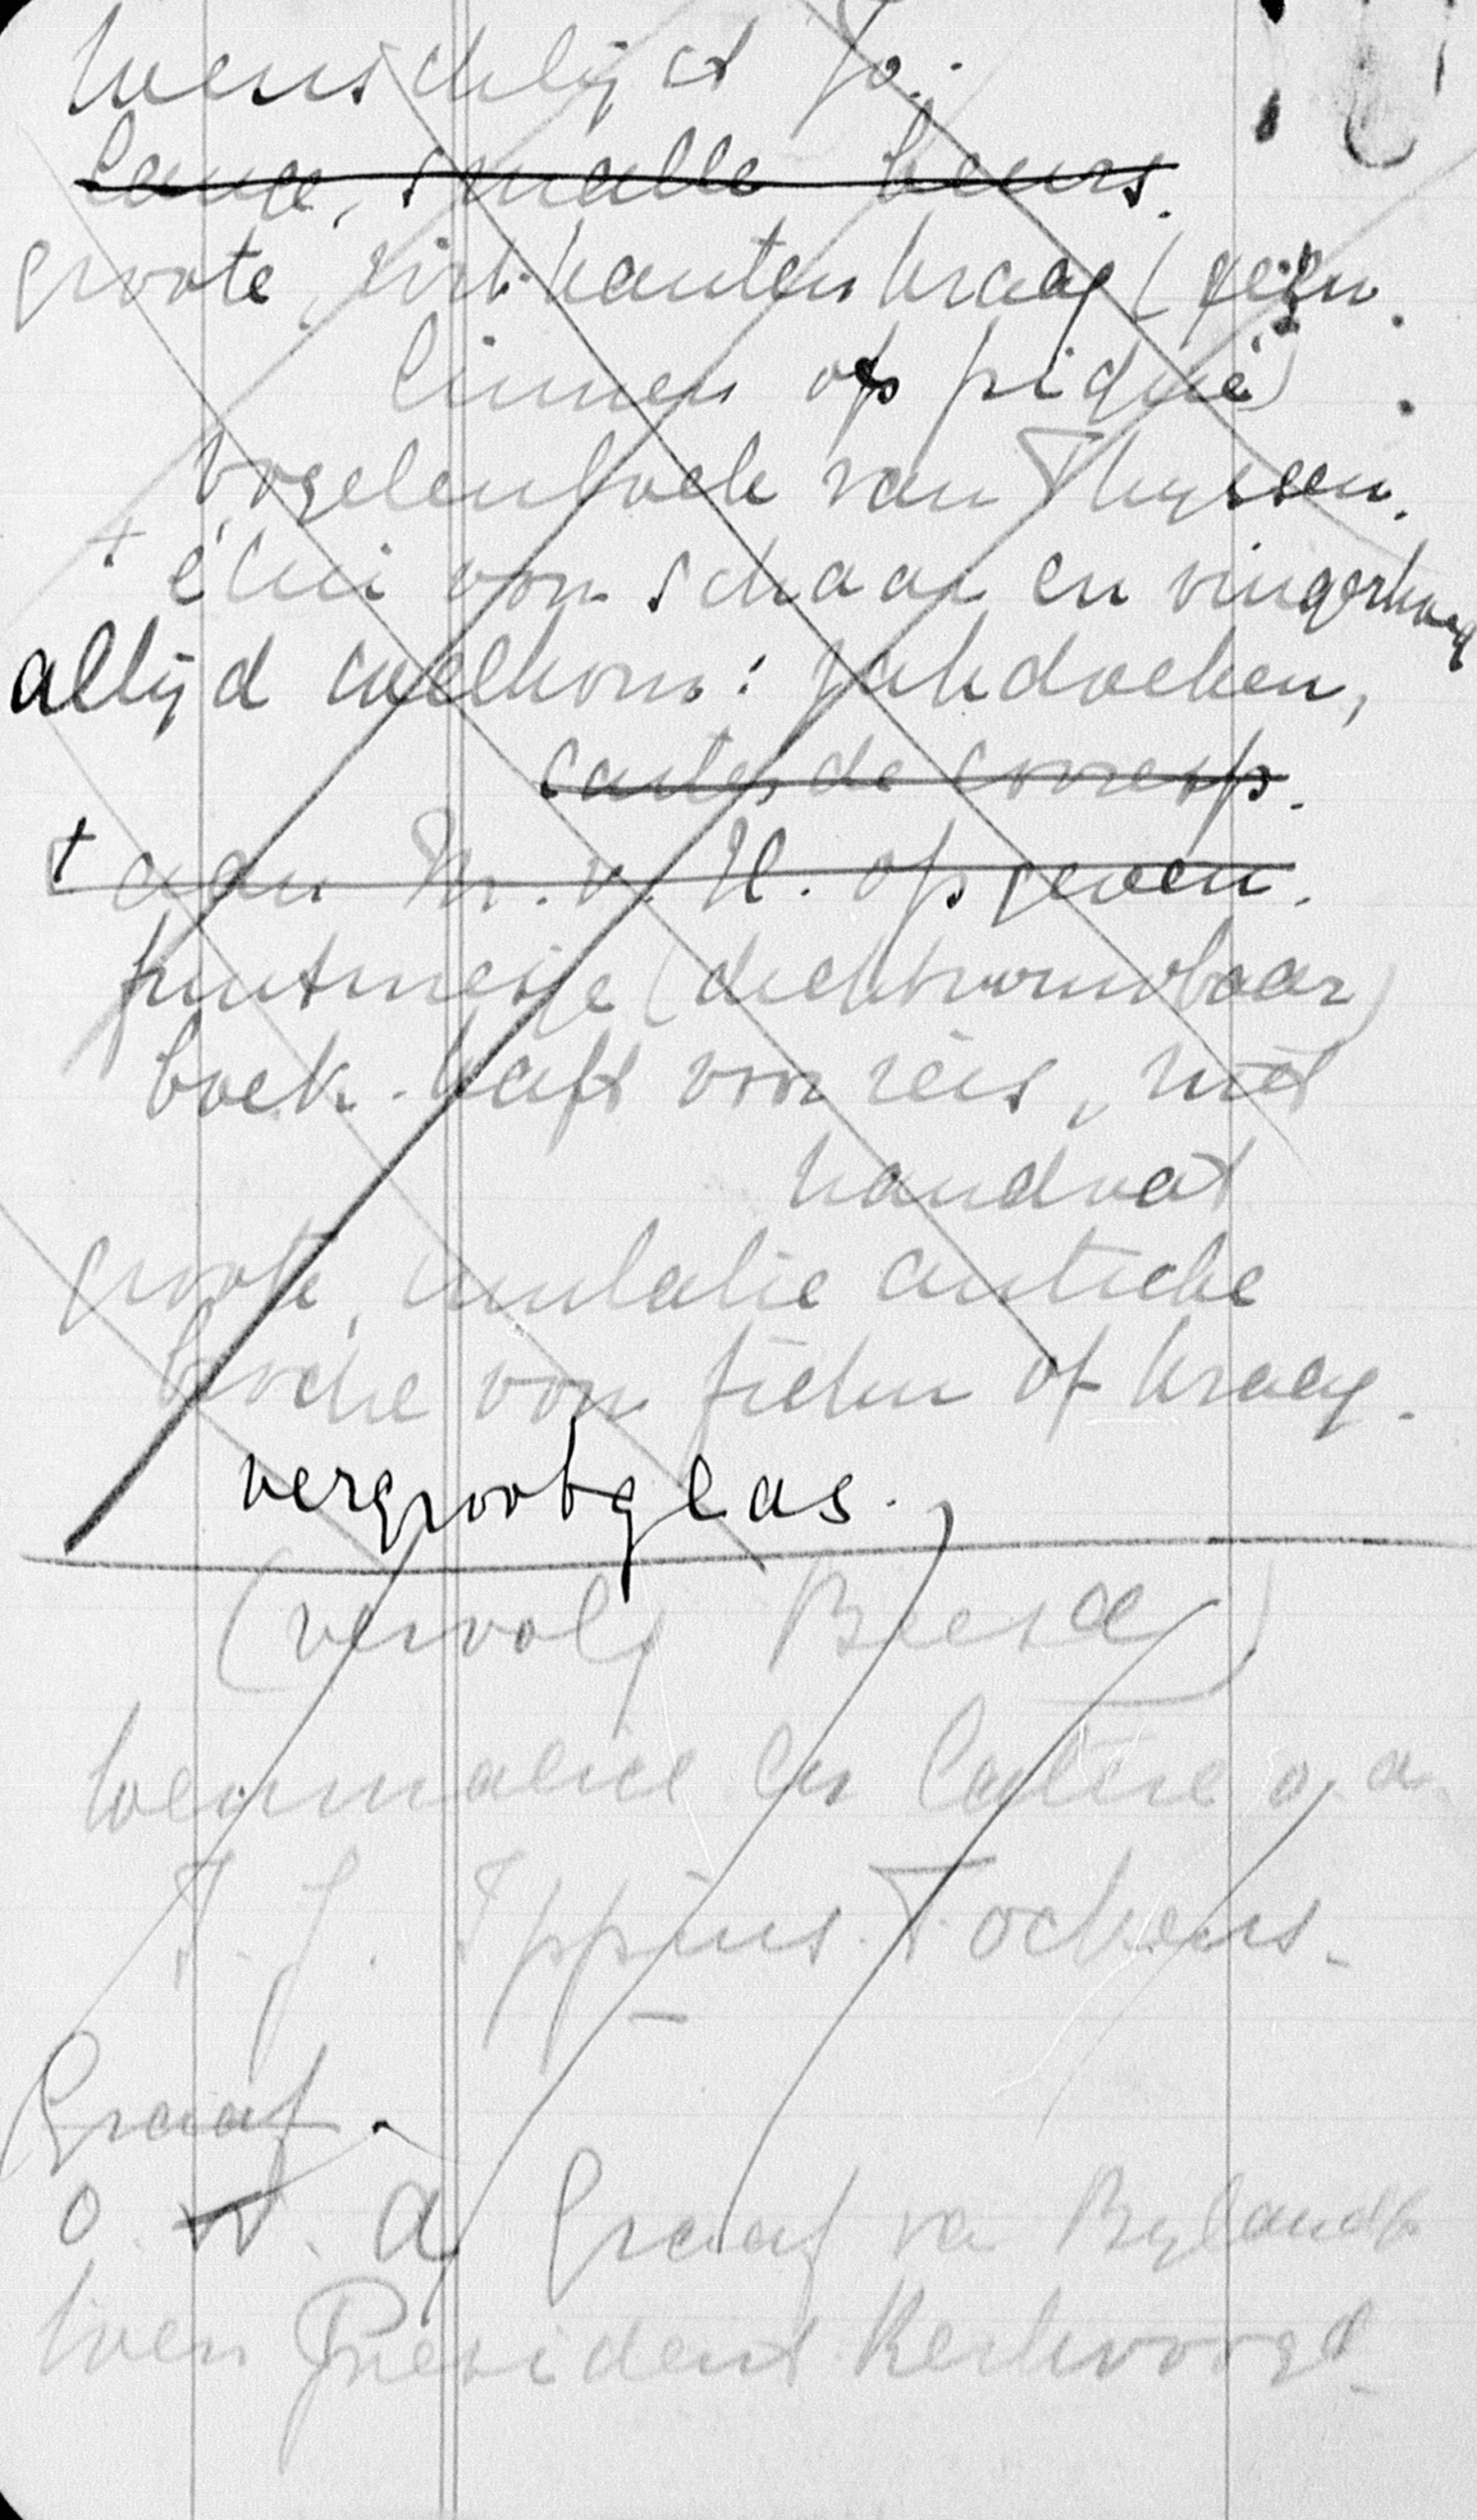 Wenschlijst Jo.
Lange, smalle beurs.
groote, kanten kraag (geen
linnen of piqué)
Vogelenboek van Thyssen.
+ étui voor schaar en vingerhoed
altijd welkom: zakdoeken,
cartes de corresp.
+ aan M. v. U. opgeven.
fruitmesje (dichtvouwbaar)
boek-kaft voor reis, met
handvat
groote, imitatie antieke
broche voor fichu of kraag.
vergrootglas.
(vervolg Beesd)
o. a.
F. J. Ippius Fockens.
Graaf
O. W. A. Graaf van Bylandt
President Kerkvoogd